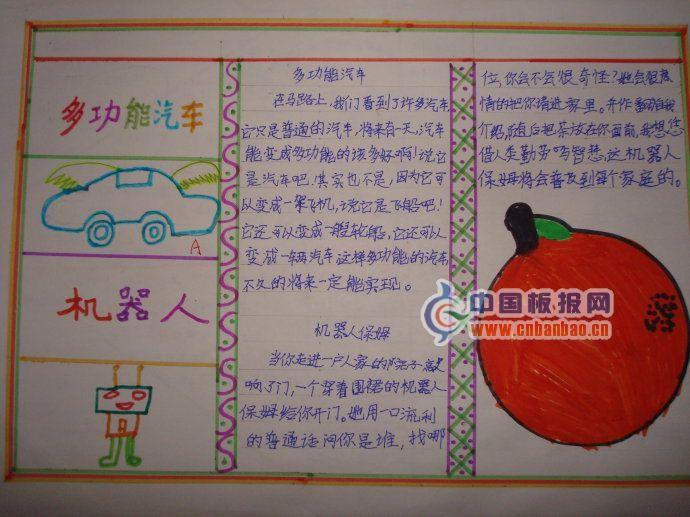 多功能汽车
A
机器人
多功能汽车
在马路上,我们看到了许多汽车,
它只是普通的汽车,将来有一天,汽车
能变成多功能的该多好啊!说它
是汽车吧,其实也不是,因为它可
以变成一架飞机,说它是飞船吧!
它还可以变成一艘轮船,它还可以
变成一辆汽车,这样多功能的汽车,
不久的将来一定能实现。
机器人保姆
当你走进一户人家的院子,敲
响了门,一个穿着围裙的机器人
保姆给你开门。她用一口流利
的普通话问你是谁,找哪
位,你会不会很奇怪?她会很热
情的把你请进家里。并作自我
介绍,随后把茶放在你面前,我想,
借人类勤劳与智慧,这机器人
保姆将会普及到每个家庭的。
中国板报网
www.cnbanbao.cn